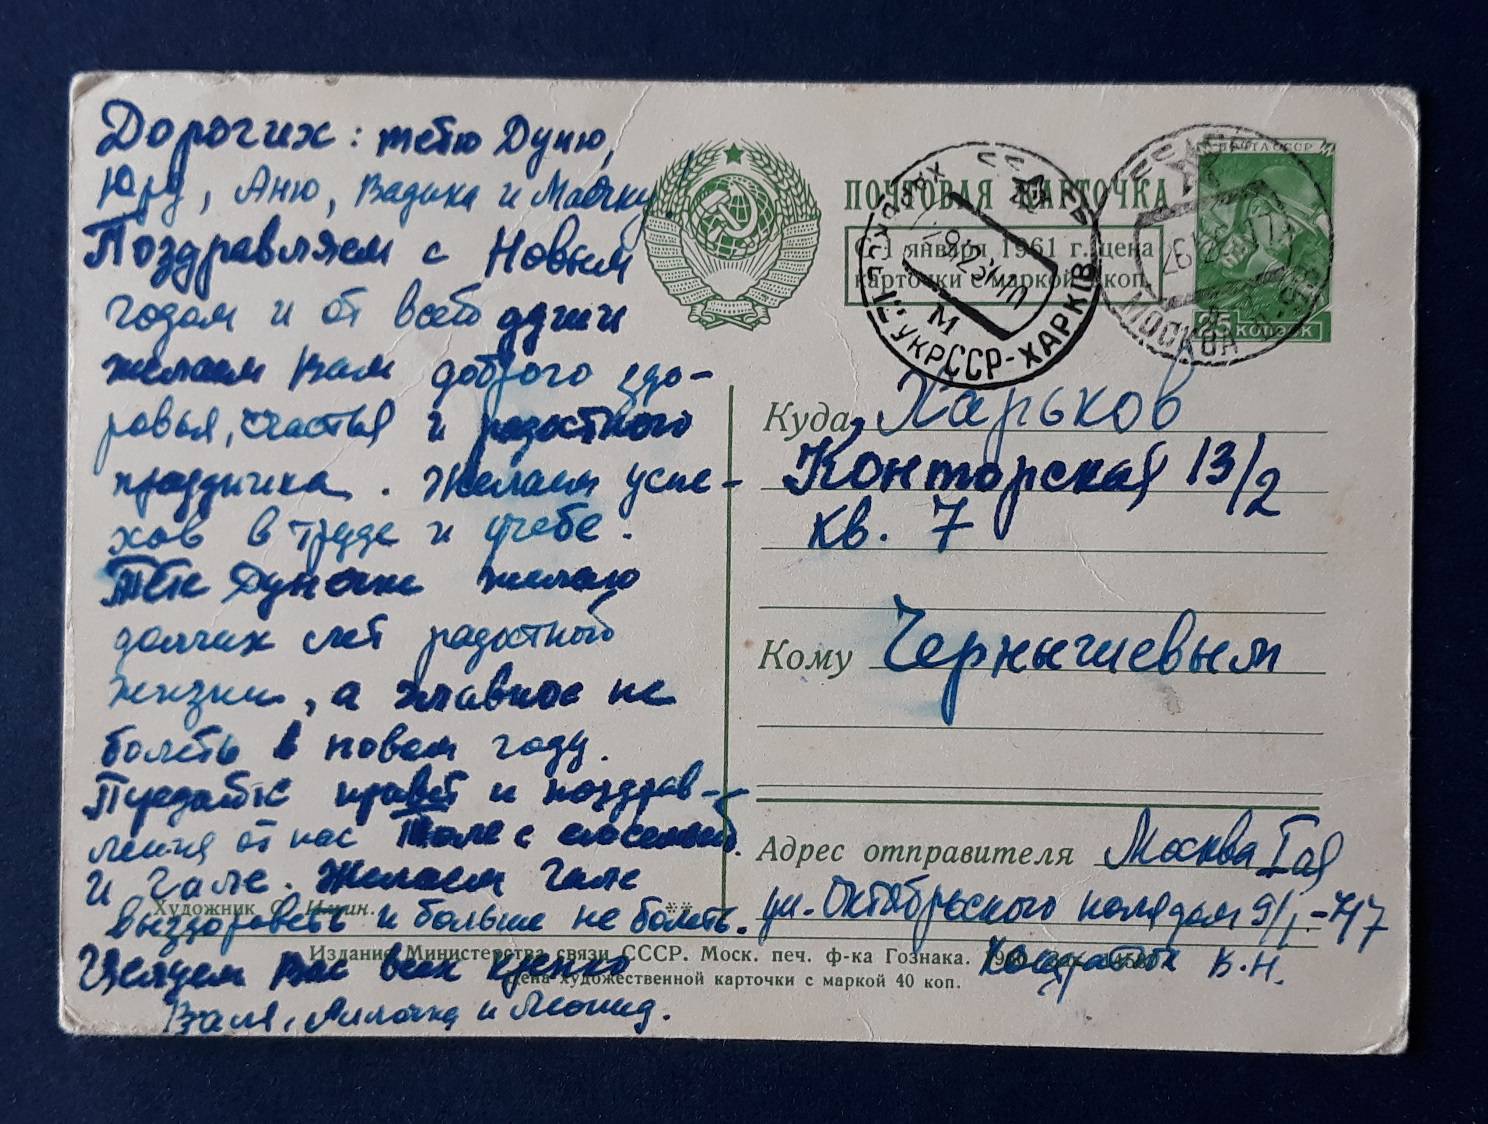 Дорогих: тётю Дуню,
Юру, Аню, Вадика и Маечку!
Поздравляем с Новым
годом и от всей души
желаем Вам доброго здо-
ровья, счастья и радостного
праздника. Желаем успе-
хов в труде и учебе.
Тёте Дунечке желаю
долгих лет радостной
жизни, а главное не
болеть в новом году.
Передайте привет и поздрав-
ления от нас Толе с семьей
и Гале. Желаем Гале
выздороветь и больше не болеть.
Целуем Вас всех крепко
Валя, Лилочка и Леонид.
ПОЧТОВАЯ КАРТОЧКА
С 1 января 1961 г. цена
карточки с маркой коп.
ПОЧТА СССР
25 КОПЕЕК
УКРССР-ХАРКІВ
МОСКВА
Куда Харьков
Конторская 13/2
кв. 7
Кому Чернышевым
Адрес отправителя Москва
ул. Октябрьского поля дом
В.Н.
Художник
Издание Министерства связи СССР. Моск. печ. ф-ка Гознака.
Цена художественной карточки с маркой 40 коп.